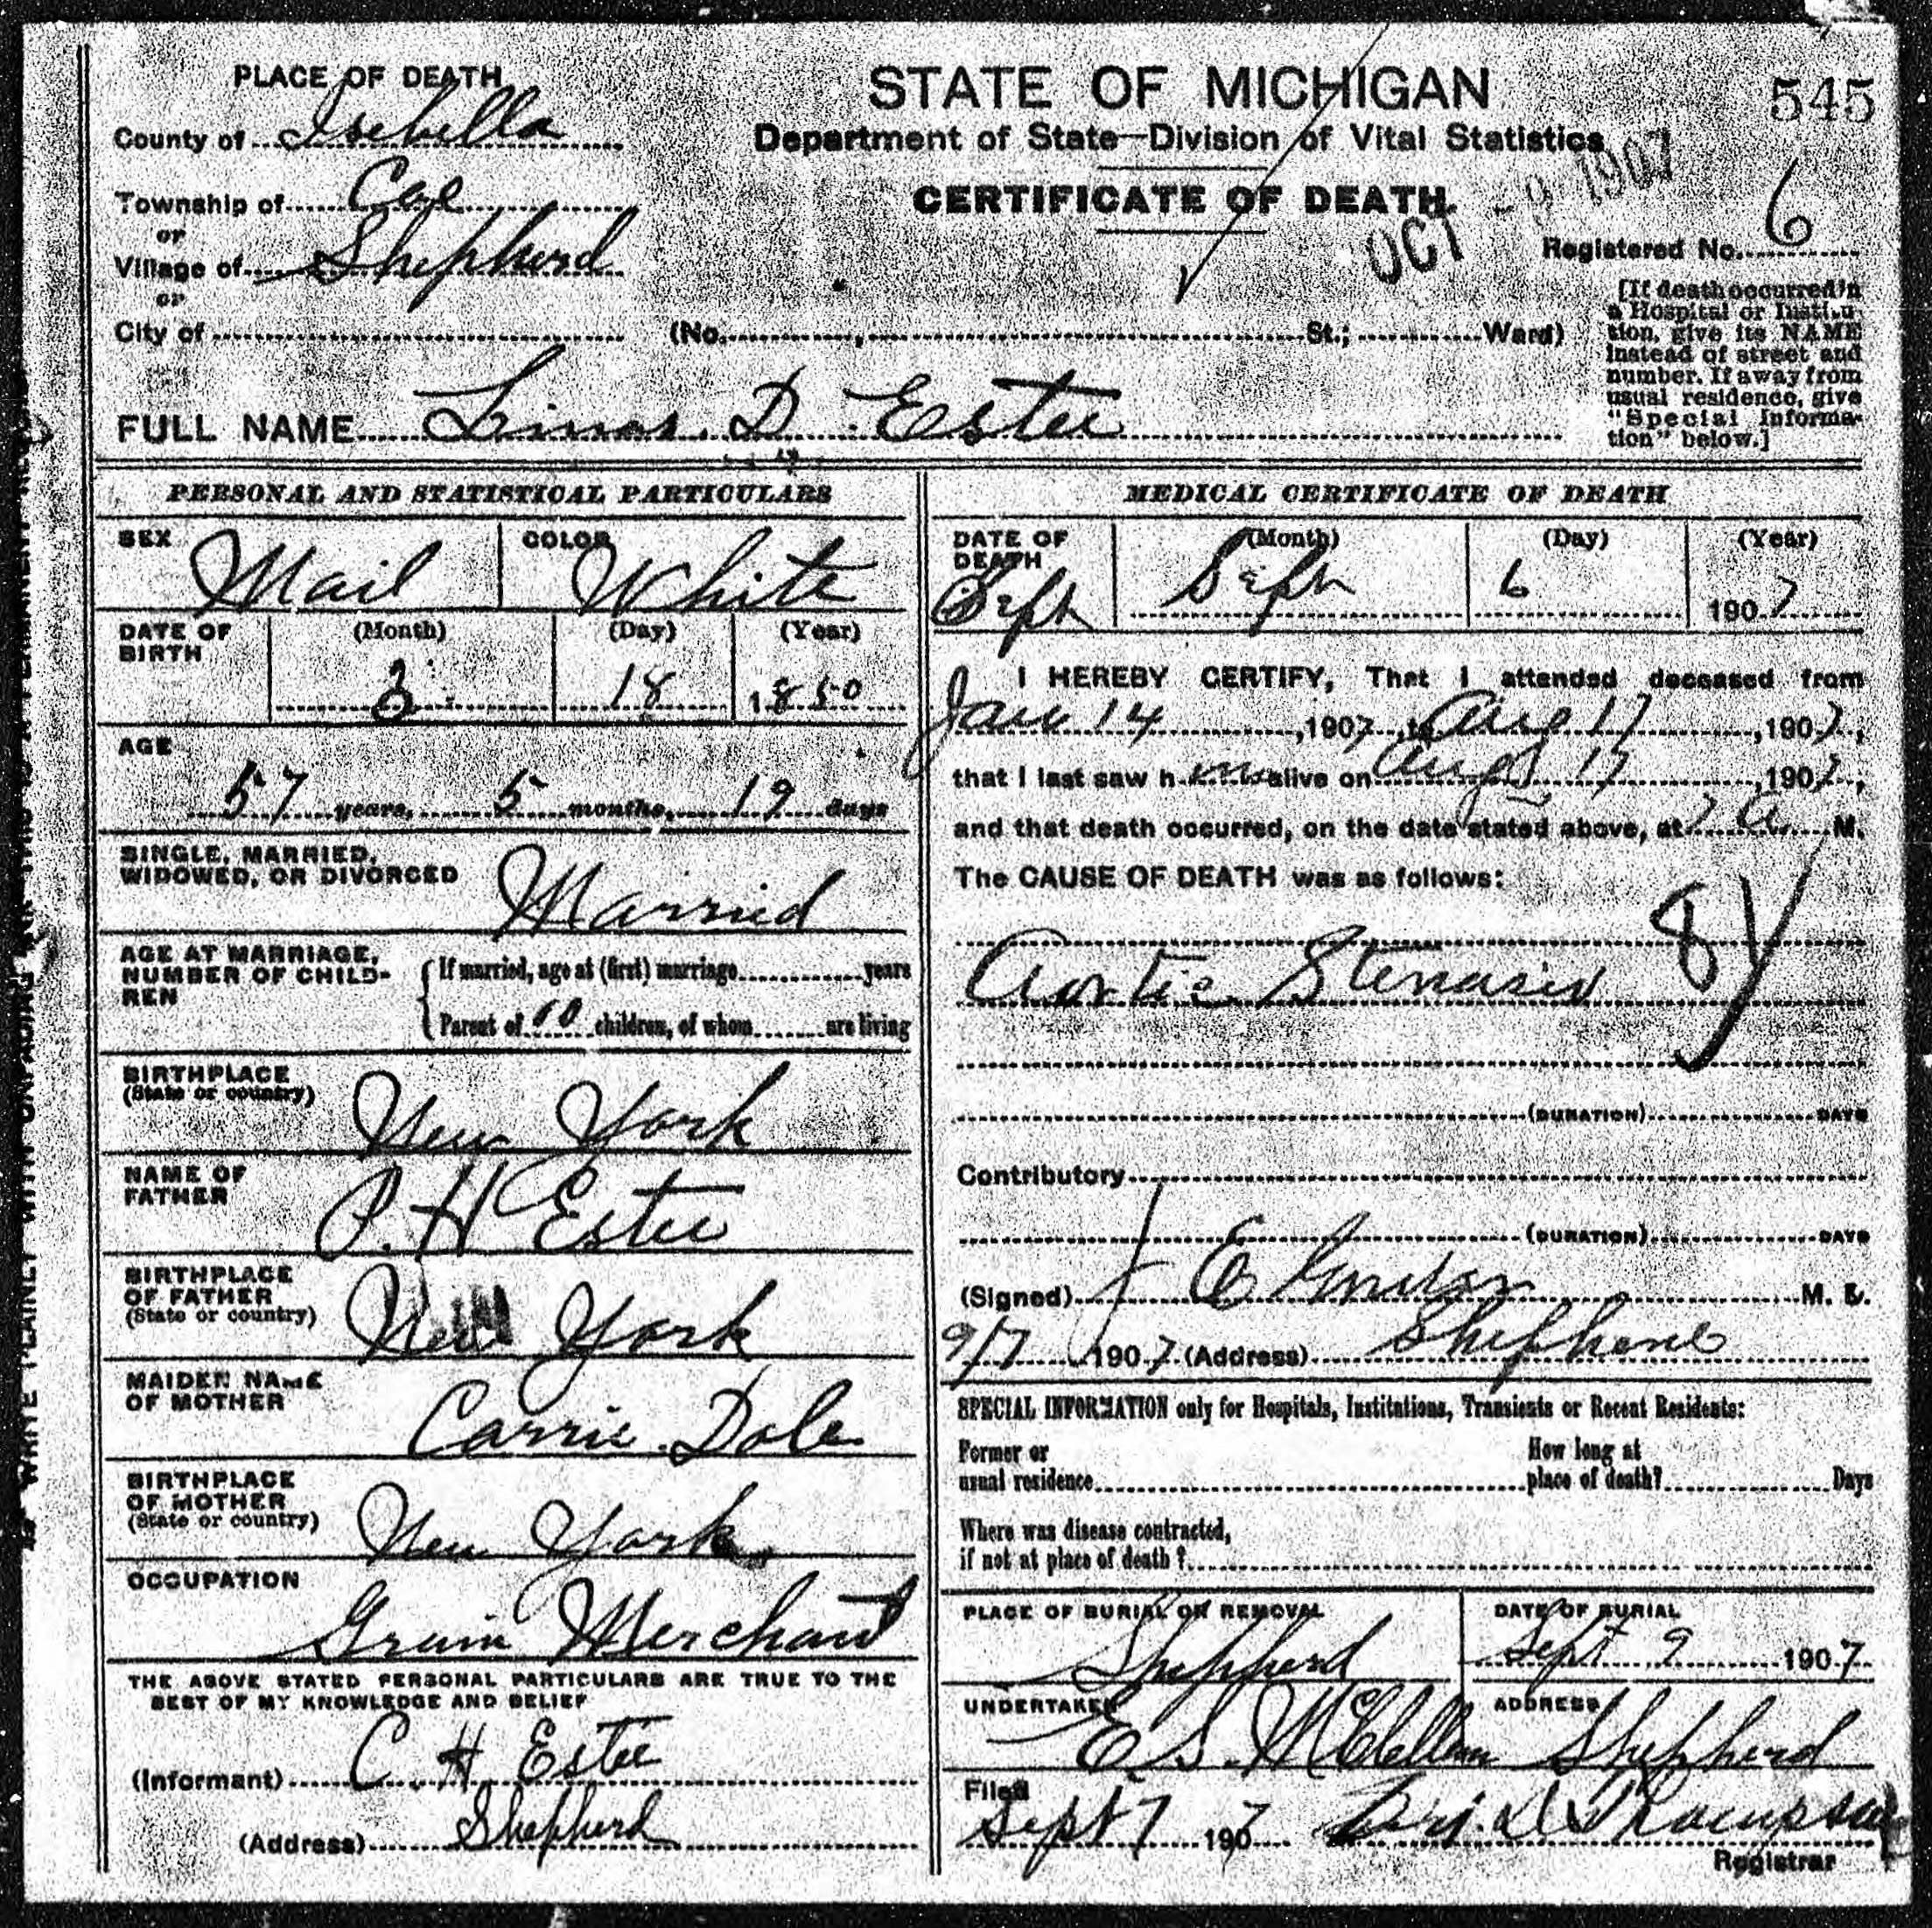 545
PLACE OF DEATH
STATE OF MICHIGAN
County of Isebella
Department of State—Division of Vital Statistics
Township of Coe
CERTIFICATE OF DEATH.
OCT -9 1907
or
Village of Shepherd
Registered No. 6
or
City of (No. , St.; Ward)
[If death occurred in
a Hospital or Institu-
tion, give its NAME
instead of street and
number. If away from
usual residence, give
"Special Informa-
tion" below.]
FULL NAME D. Estee
PERSONAL AND STATISTICAL PARTICULARS
SEX Mail COLOR White
DATE OF BIRTH (Month) 3 (Day) 18 (Year) 1850
AGE
57 years, 5 months, 19 days
SINGLE, MARRIED,
WIDOWED, OR DIVORCED Married
AGE AT MARRIAGE,
NUMBER OF CHILD-
REN
If married, age at (first) marriage years
Parent of 10 children, of whom are living
BIRTHPLACE
(State or country) New York
NAME OF
FATHER P. H Estee
BIRTHPLACE
OF FATHER
(State or country) New York
MAIDEN NAME
OF MOTHER Carrie Dole
BIRTHPLACE
OF MOTHER
(State or country) New York
OCCUPATION
Grain Merchant
THE ABOVE STATED PERSONAL PARTICULARS ARE TRUE TO THE
BEST OF MY KNOWLEDGE AND BELIEF
(Informant) C. H Estee
(Address) Shepherd
MEDICAL CERTIFICATE OF DEATH
DATE OF DEATH Sept (Month) Sept (Day) 6 (Year) 1907
I HEREBY CERTIFY, That I attended deceased from
Jan 14, 1907, to Aug 17, 1907,
that I last saw him alive on Aug 17, 1907,
and that death occurred, on the date stated above, at 7 a M.
The CAUSE OF DEATH was as follows:
Aortic Stenosis
(DURATION) DAYS
Contributory
(DURATION) DAYS
(Signed) M. D.
9/7 1907 (Address) Shepherd
SPECIAL INFORMATION only for Hospitals, Institutions, Transients or Recent Residents:
Former or
usual residence
How long at
place of death? Days
Where was disease contracted,
if not at place of death?
PLACE OF BURIAL OR REMOVAL
Shepherd
DATE OF BURIAL
Sept 9 1907
UNDERTAKER
E S. McClellan
ADDRESS
Shepherd
Filed
Sept 7 1907 Thompson
Registrar